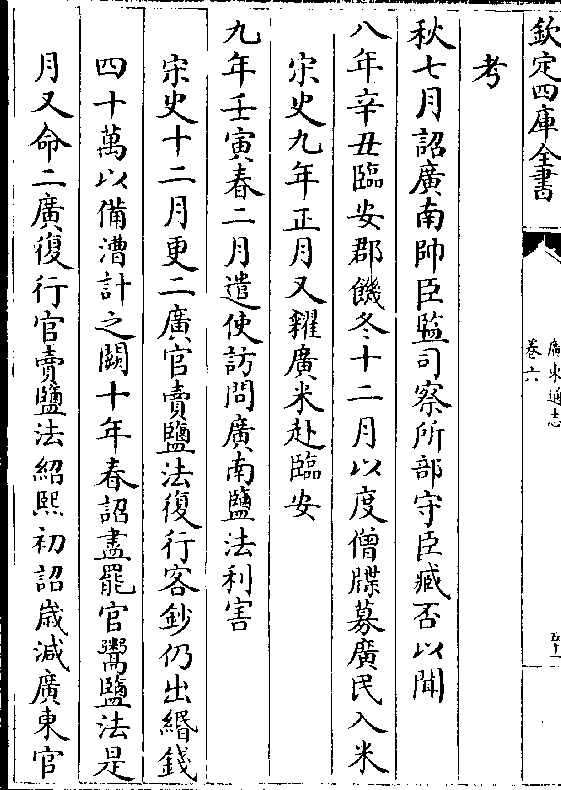 欽定四庫全書
廣東通志
卷六
五十一
考
秋七月詔廣南帥臣監司察所部守臣臧否以聞
八年辛丑臨安郡饑冬十二月以度僧牒募廣民入米
宋史九年正月又糴廣米赴臨安
九年壬寅春二月遣使訪問廣南鹽法利害
宋史十二月更二廣官賣鹽法復行客鈔仍出緡錢
四十萬以備漕計之闕十年春詔盡罷官鬻鹽法是
月又命二廣復行官賣鹽法紹熙初詔嵗減廣東官